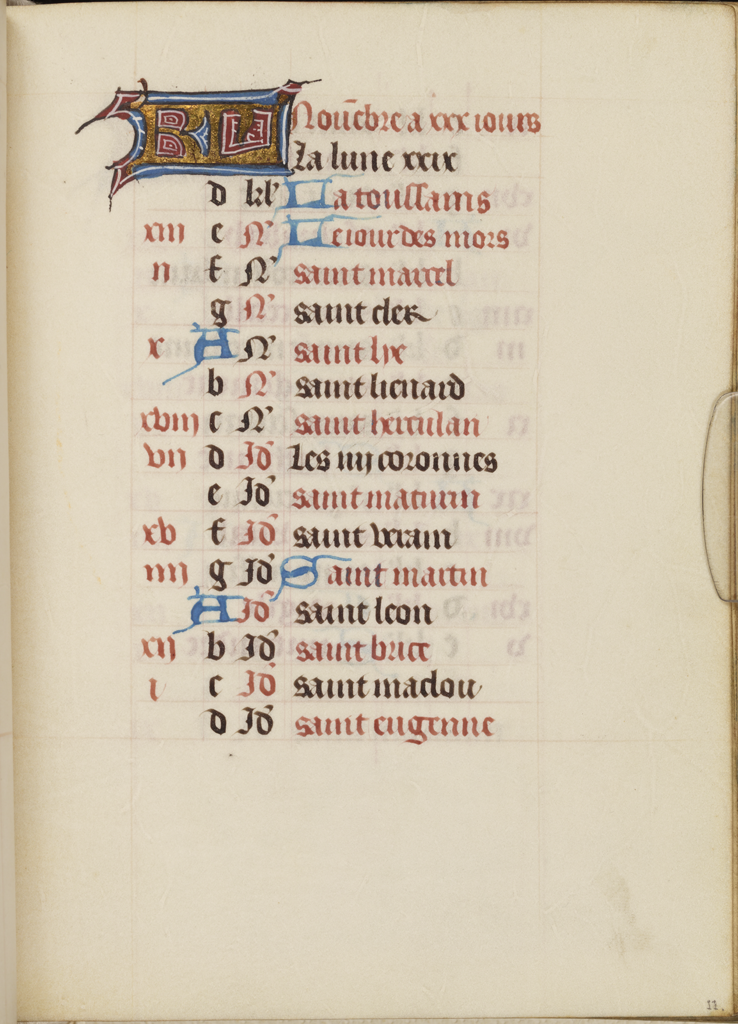 KL Nouēbre a xxx iours
La lune xxix
d kl' La toussains
xiii e N' Le iour des mors
ii f N' saint marcel
g N' saint cler
x A N' saint lye
b N' saint lienard
xviii c N' saint herculan
vii d Id' Les iiij coronnes
e Id' saint maturin
xv f Id' saint verain
iiii g Id' Saint martin
A Id' saint leon
xij b Id' saint brice
i c Id' saint maclou
d Id' saint eugenne
11.